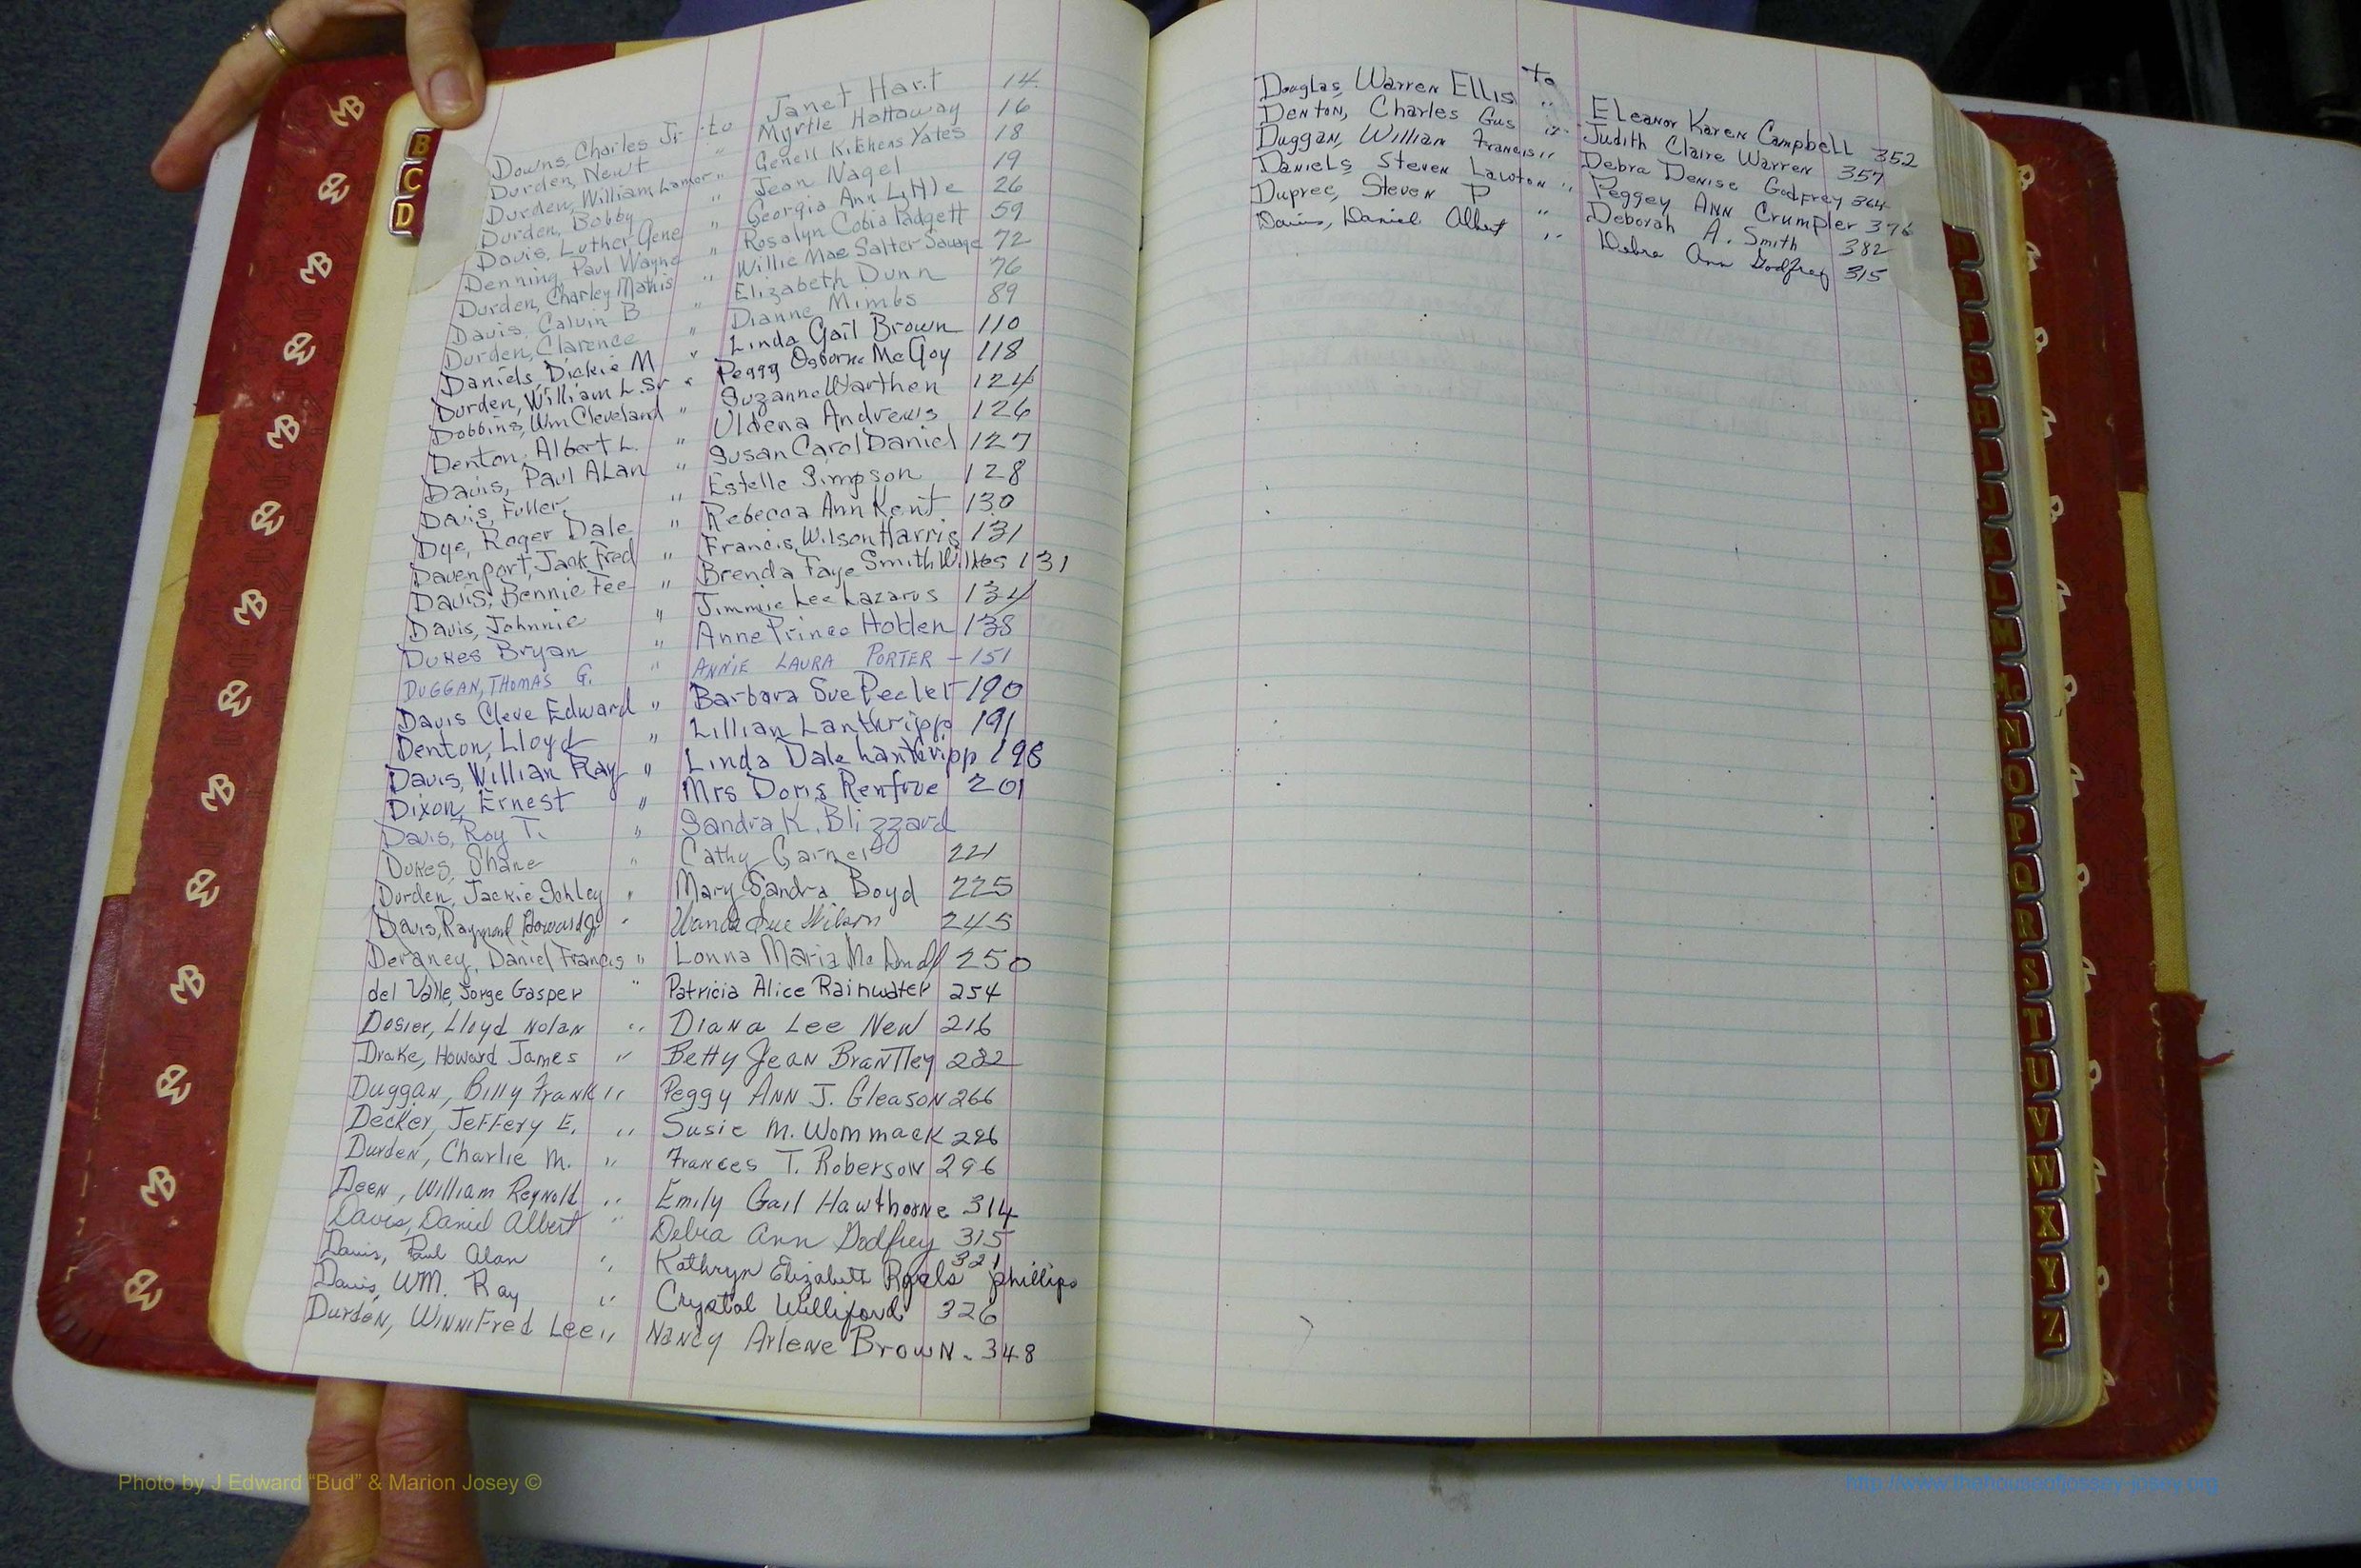 B
C
D
Downs, Charles Jr. to Janet Hart 14
Durden, Newt " Myrtle Hattaway 16
Durden, William Lamar " Genell Kitchens Yates 18
Durden, Bobby " Jean Nagel 19
Davis, Luther Gene " Georgia Ann Lyttle 26
Denning, Paul Wayne " Rosalyn Cobia Padgett 59
Durden, Charley Mathis " Willie Mae Salter Savage 72
Davis, Calvin B " Elizabeth Dunn 76
Durden, Clarence " Dianne Mimbs 89
Daniels, Dickie M " Linda Gail Brown 110
Durden, William L. Sr " Peggy Osborne McCoy 118
Dobbins, Wm Cleveland " Suzanne Warthen 124
Denton, Albert L. " Uldena Andrews 126
Davis, Paul ALan " Susan Carol Daniel 127
Davis, Fuller " Estelle Simpson 128
Dye, Roger Dale " Rebecca Ann Kent 130
Davenport, Jack Fred " Francis Wilson Harris 131
Davis, Bennie Fee " Brenda Faye Smith Wilkes 131
Davis, Johnnie " Jimmie Lee Lazarus 134
Dukes Bryan " Anne Prince Holden 138
DUGGAN, THOMAS G. " ANNIE LAURA PORTER - 151
Davis Cleve Edward " Barbara Sue Peeler 190
Denton, Lloyd " Lillian Lanthripp 191
Davis, Willian Ray " Linda Dale Lanthripp 198
Dixon, Ernest " Mrs Doris Renfroe 201
Davis, Roy T. " Sandra K. Blizzard
Dukes, Shane " Cathy Garner 221
Durden, Jackie Schley " Mary Sandra Boyd 225
Davis, Raymond Howard Jr " Wanda Sue Wilson 245
Deraney, Daniel Francis " Lonna Maria 250
del Valle, Jorge Gasper " Patricia Alice Rainwater 254
Dosier, Lloyd Nolan " Diana Lee New 216
Drake, Howard James " Betty Jean Brantley 282
Duggan, Billy Frank " Peggy Ann J. Gleason 266
Decker, Jeffery E. " Susie M. Wommack 296
Durden, Charlie M. " Frances T. Roberson 296
Deen, William Reynold " Emily Gail Hawthorne 314
Davis, Daniel Albert " Debra Ann Godfrey 315
Davis, Paul Alan " Kathryn Elizabeth Phillips 321
Davis, WM. Ray " Crystal Williford 326
Durden, Winnifred Lee " Nancy Arlene Brown - 348
Douglas, Warren Ellis to Eleanor Karen Campbell 352
Denton, Charles Gus " Judith Claire Warren 357
Duggan, Willian Francis " Debra Denise Godfrey 364
Daniels, Steven Lawton " Peggey Ann Crumpler 376
Dupree, Steven P " Deborah A. Smith 382
Davis, Daniel Albert " Debra Ann Godfrey 315
H
L
M
Mc
N
O
P
Q
R
S
T
U
V
W
X
Y
Z
Photo by J Edward “Bud” & Marion Josey ©
http://www.thehouseofjossey-josey.org